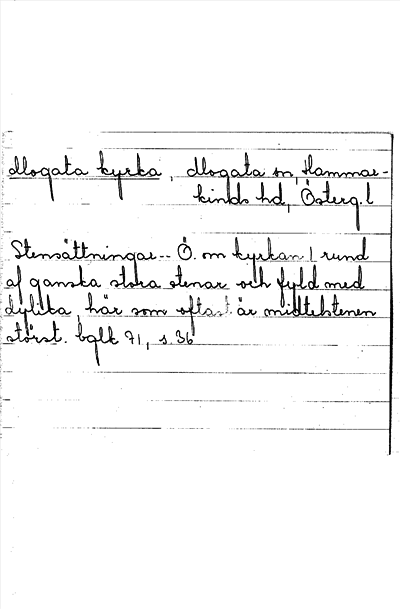 Mogata kyrka, Mogata sn, Hammar-
kinds hd, Österg. l
Stensättningar -- Ö. om kyrkan 1 rund
af ganska stora stenar och fyld med
dylika, här som oftast är midtelstenen
störst. bglk 71, s. 36